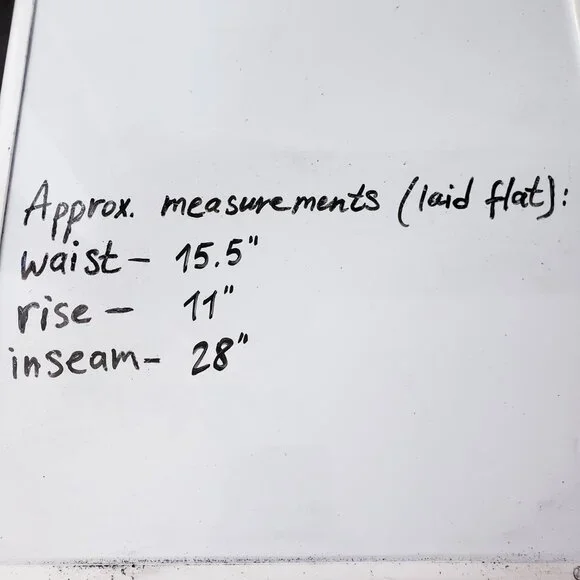 Approx. measurements (laid flat):
waist - 15.5"
rise - 11"
inseam - 28"